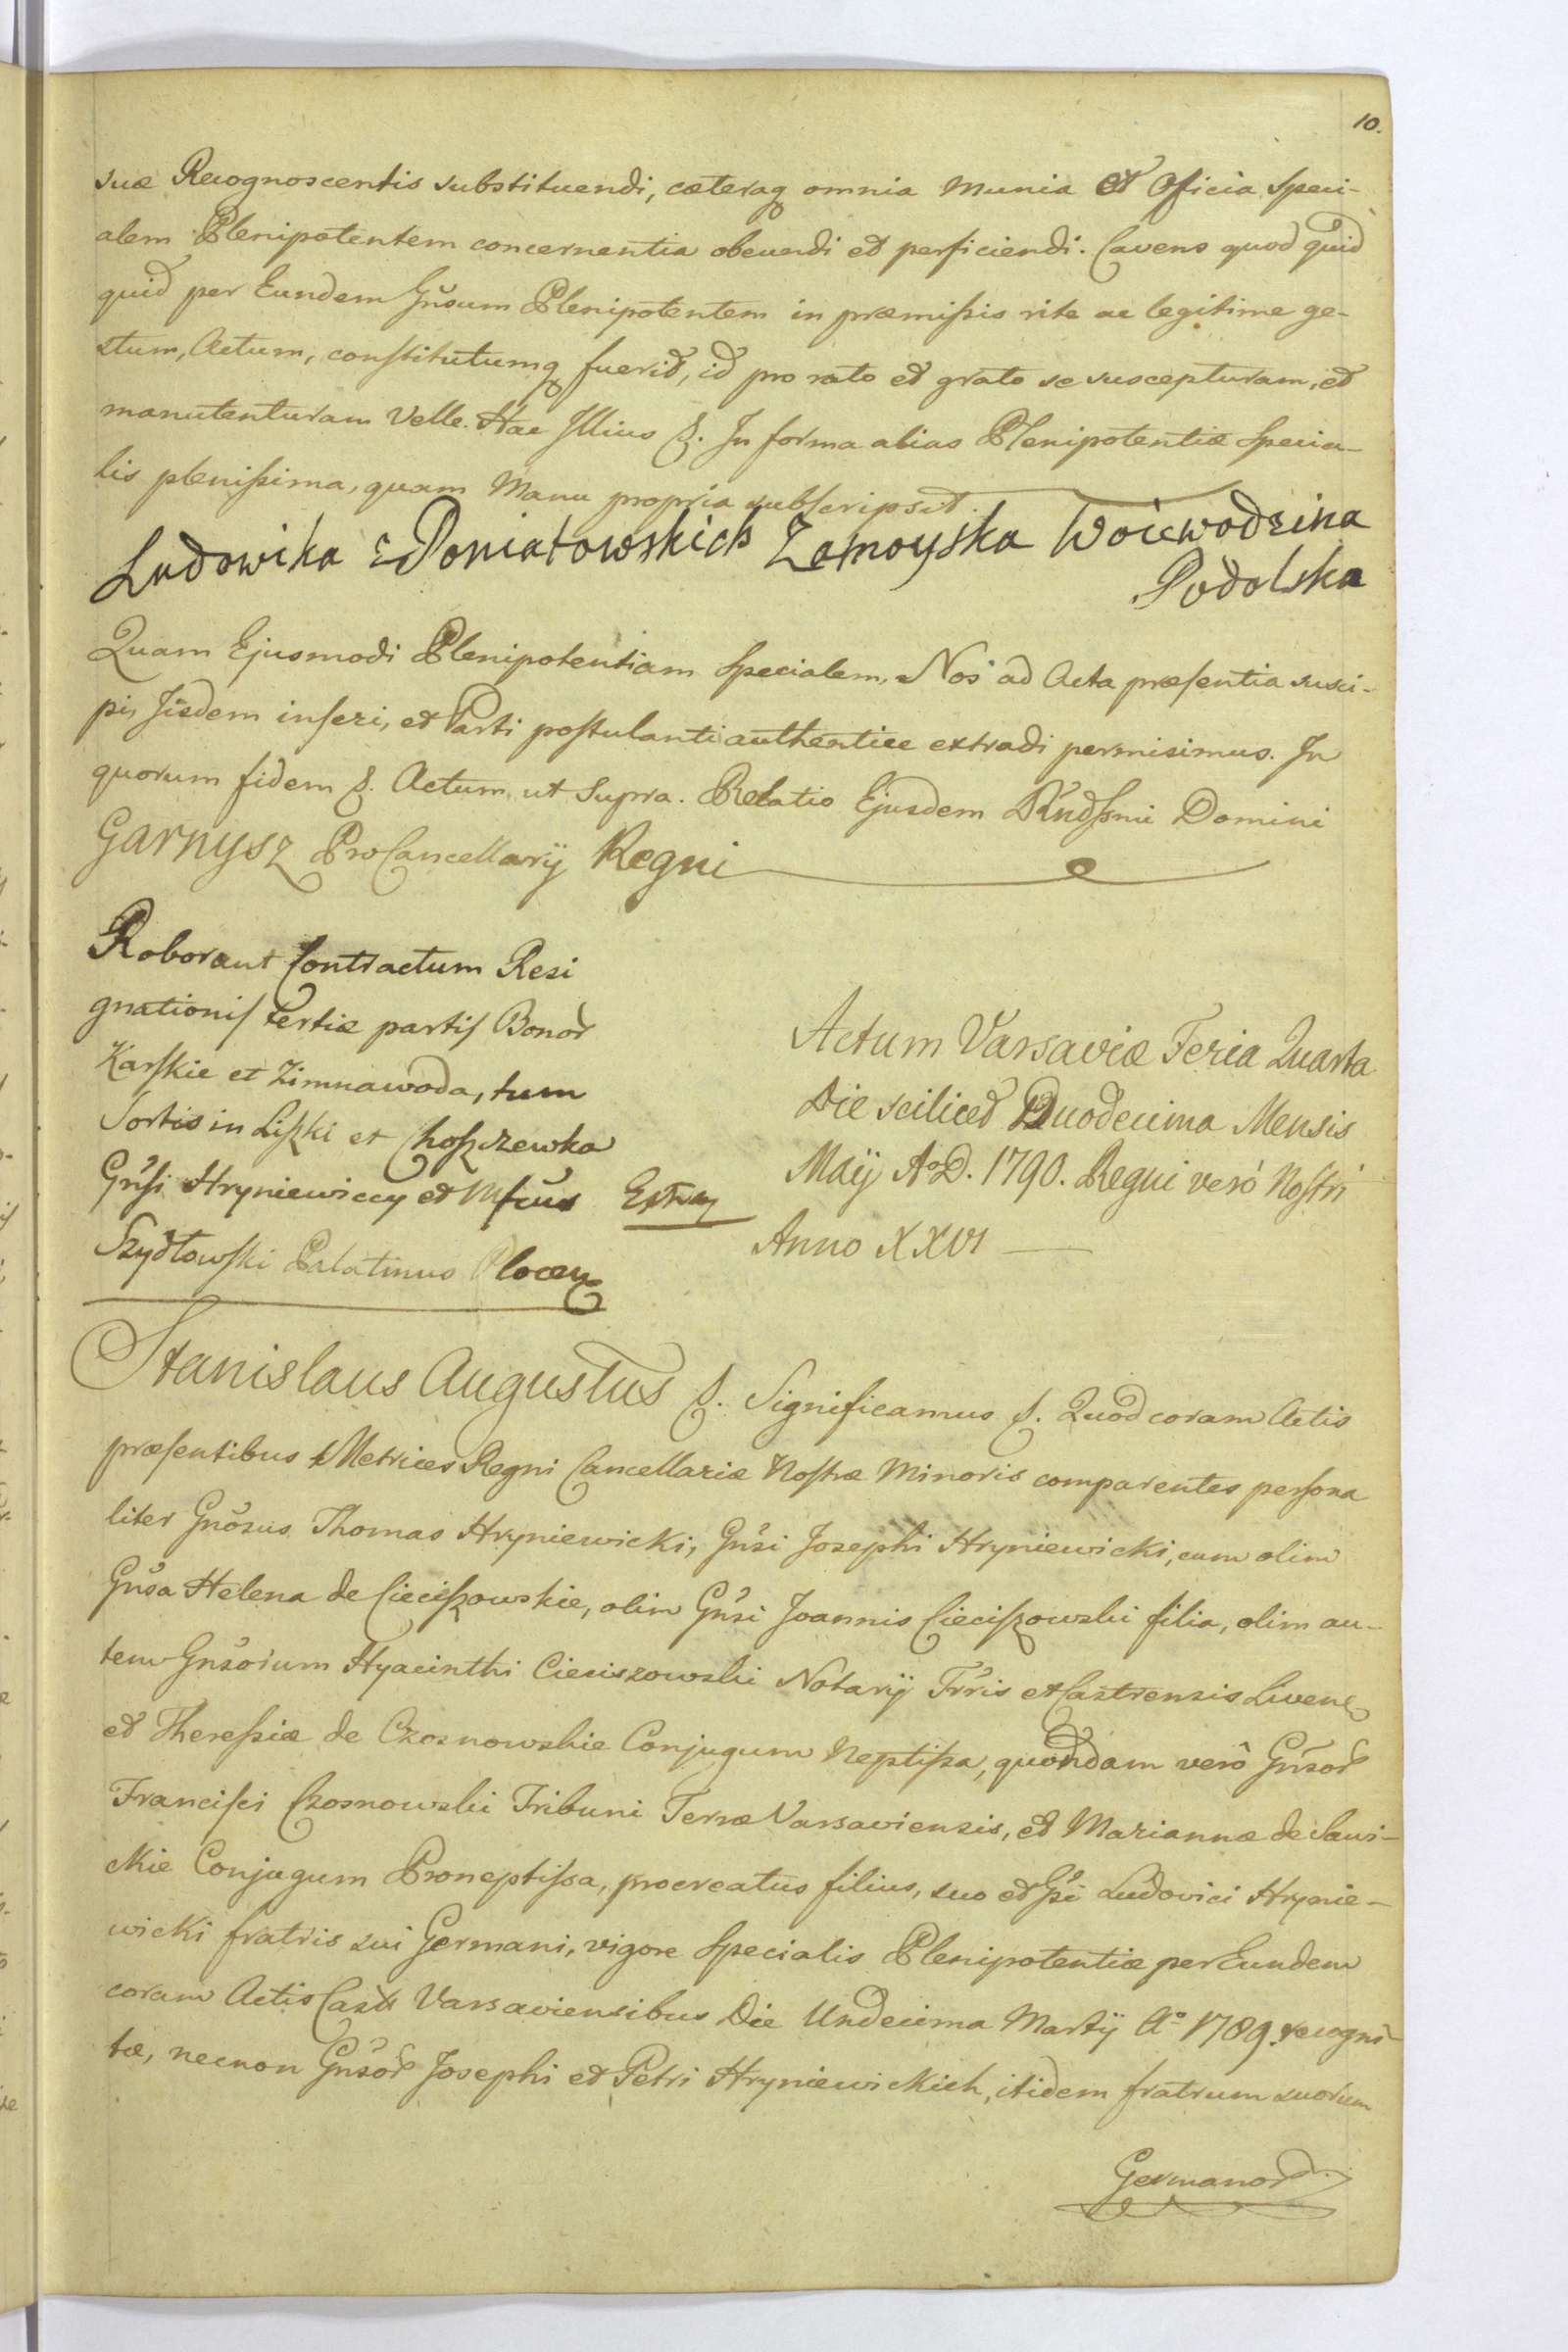 10.
suæ Recognoscentis substituendi, cæteraq omnia Munia et Officia Speci-
alem Plenipotentem concernentia obeundi et perficiendi. Cavens quod quid
quid per Eundem Gnsum Plenipotentem in præmissis rite ac legitime ge-
stum, Actum, constitutumq fuerit, id pro rato et grato se suscepturam, et
manutenturam Velle. Hac Illius &. In forma alias Plenipotentiæ Specia-
lis plenissima, quam Manu propria subscripsit.
Ludowika z Poniatowskich Zamoyska Woiewodzina
Podolska
Quam Ejusmodi Plenipotentiam Specialem, Nos ad Acta præsentia susci-
pi, Iisdem inseri, et Parti postulanti authentice extradi permisimus. In
quorum fidem &. Actum ut Supra. Relatio Ejusdem Rndssmi Domini
Garnysz ProCancellarij Regni
Roborant Contractum Resi
gnationis tertiæ partis Bonor
Karskie et Zimnawoda, tum
Sortis in Liszki et Choszczewka
Gnsi Hryniewiccy et Mfcus
Szydłowski Palatinus Plocen
Extra
Actum Varsaviæ Feria Quarta
Die scilicet Duodecima Mensis
Maij A°D. 1790. Regni verò Nostri
Anno XXVI
Stanislaus Augustus &. Significamus &. Quod coram Actis
præsentibus Metrices Regni Cancellariæ Nostræ Minoris comparentes persona
liter Gnosus Thomas Hryniewicki, Gnsi Josephi Hryniewicki, cum olim
Gnsa Helena de Cieciszowskie, olim Gnsi Joannis Cieciszowski filia, olim au-
tem Gnsorum Hyacinthi Cieciszowski Notarij Trris et Castrensis Livens
et Theressiæ de Czosnowskie Conjugum Neptissa, quondam verò Gnsor
Francisci Czosnowski Tribuni Terræ Varsaviensis, et Mariannæ de Sawi-
ckie Conjugum Proneptissa, procreatus filius, suo et Gsi Ludovici Hrynie-
wicki fratris sui Germani, vigore Specialis Plenipotentiæ per Eundem
coram Actis Castr Varsaviensibus Die Undecima Martij A° 1789. recogni-
tæ, necnon Gnsor Josephi et Petri Hryniewickich, itidem fratrum suorum
Germanor